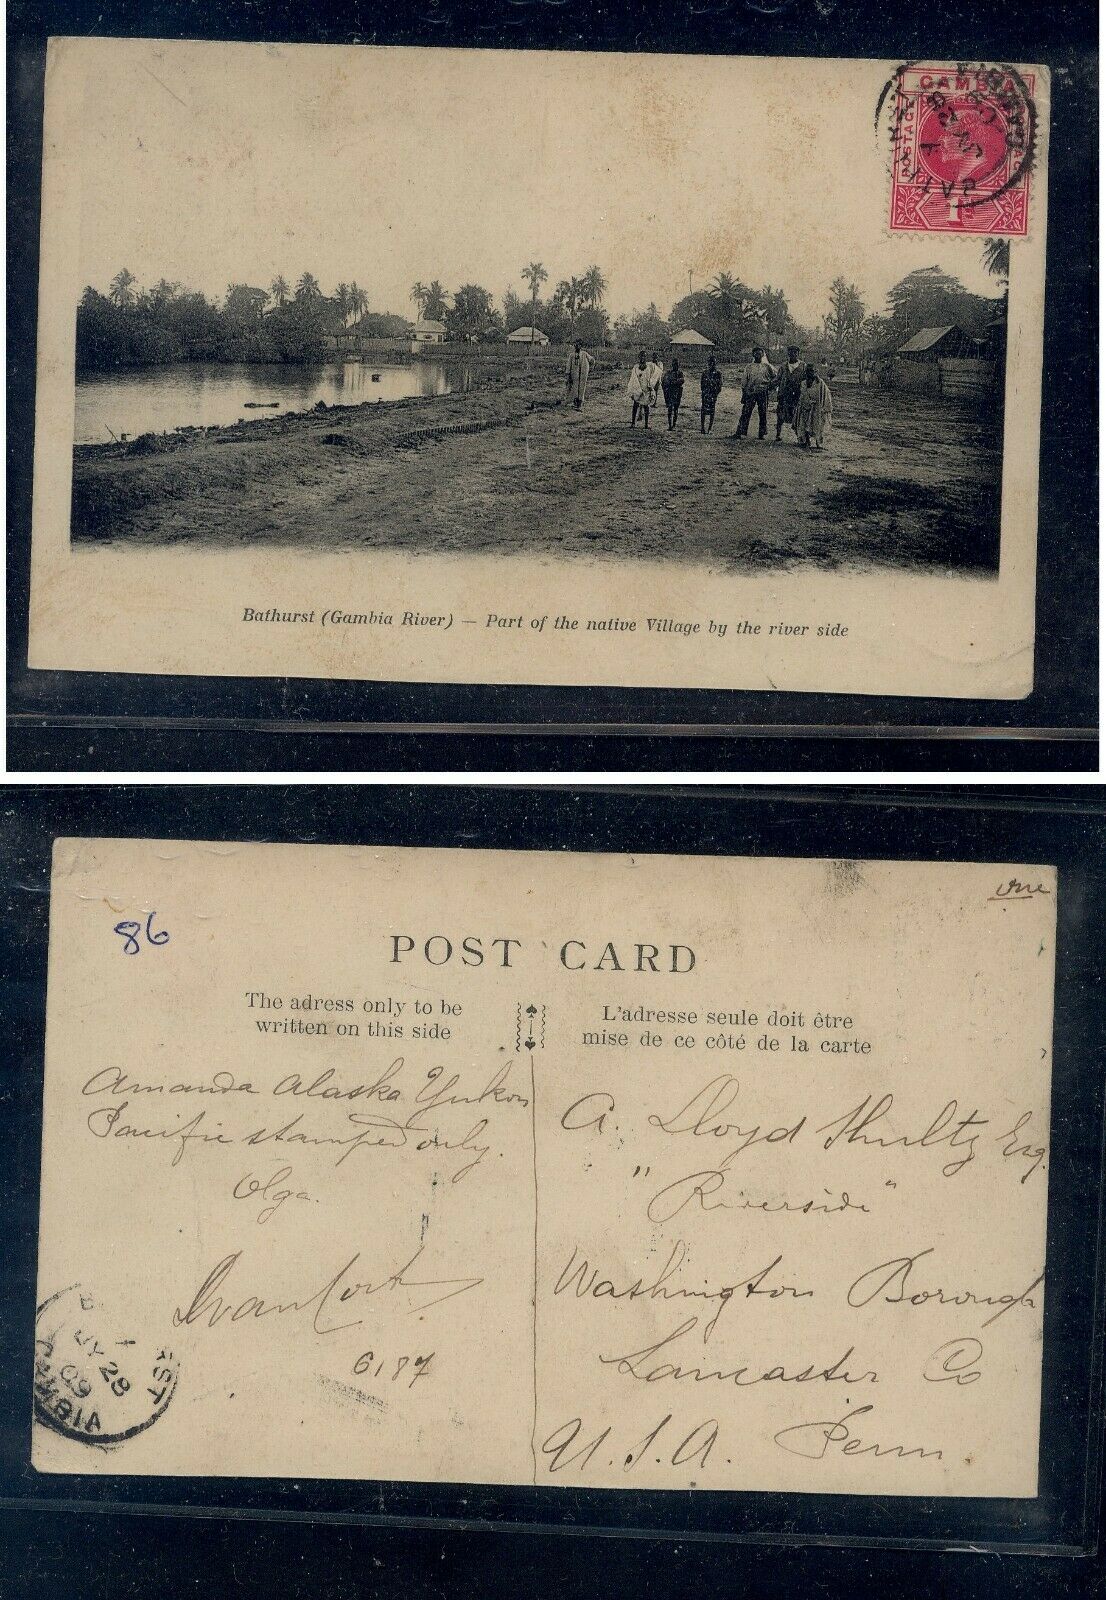 GAMBIA
POSTAGE
1D
Bathurst (Gambia River) — Part of the native Village by the river side
one
86
POST CARD
The adress only to be
written on this side
L'adresse seule doit être
mise de ce côté de la carte
Amanda Alaska Yukon
Pacific stamped only.
Olga.
6187
A. Lloyd Shultz Esq.
"Riverside"
Washington Borough
Lancaster Co
U.S.A. Penn.
JY 28
09
GAMBIA